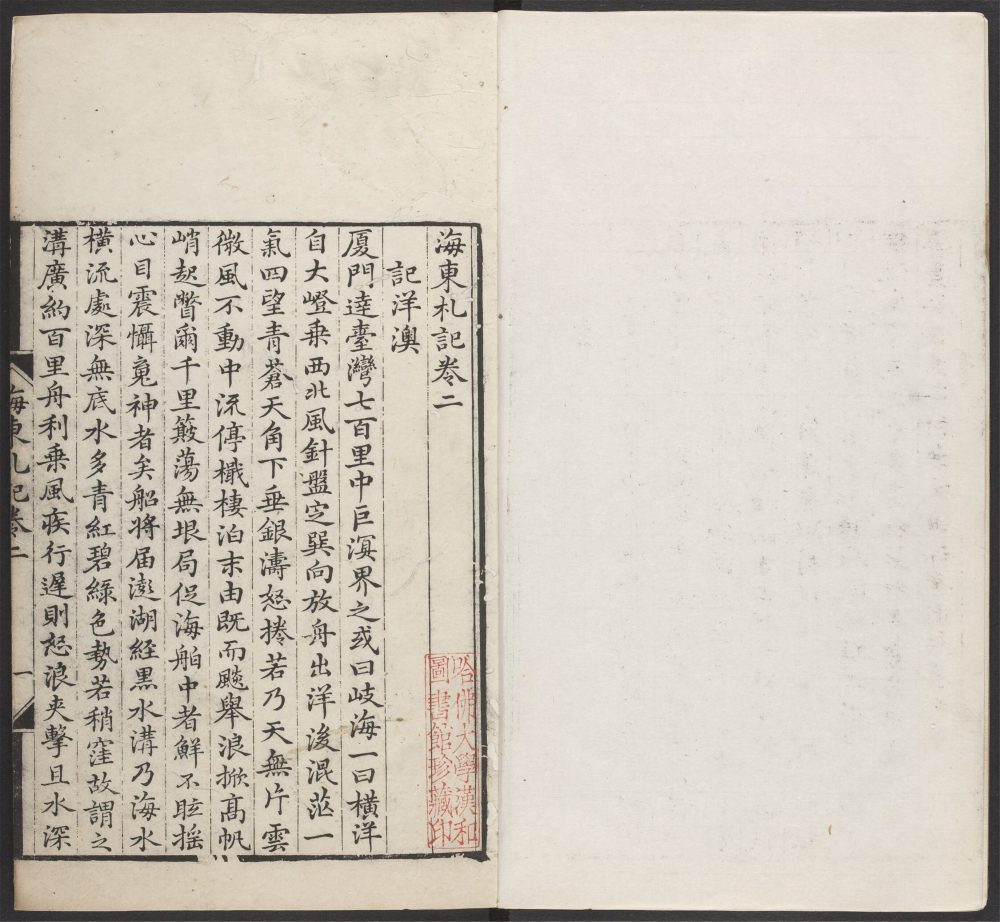 海東札記卷二
記洋澳
厦門達臺灣七百里中巨溟界之或曰岐海一曰橫洋
自大嶝乗西北風針盤定巽向放舟出洋後混茫一
氣四望青蒼天角下垂銀濤怒捲若乃天無片雲
微風不動中流停檝棲泊末由既而颷舉浪掀髙帆
峭起瞥爾千里簸蕩無垠局促海舶中者鮮不眩揺
心目震懾䰟神者矣船將届澎湖経黒水溝乃海水
橫流處深無底水多青紅碧綠色勢若稍窪故謂之
溝廣約百里舟利乗風疾行遲則怒浪夾擊且水深
海東札記卷二
一
哈佛大學漢和
圖書館珍藏印